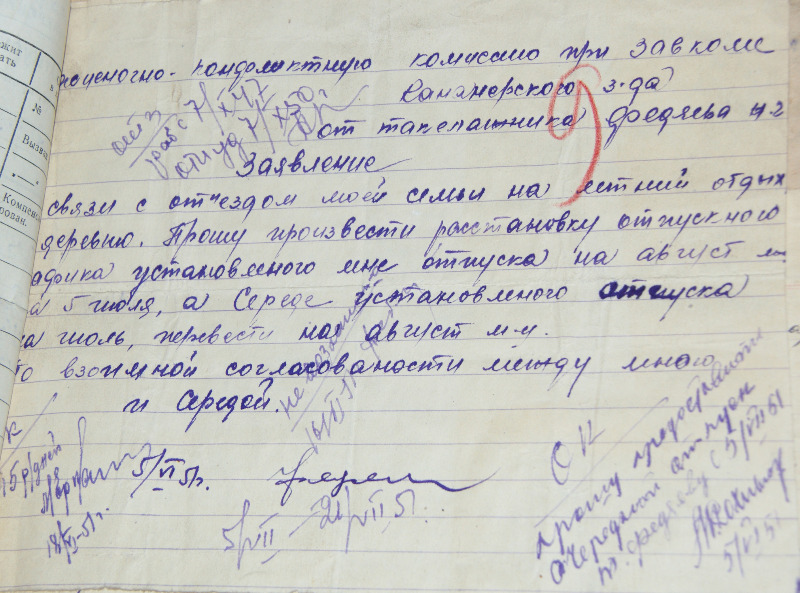 жит
ать
в
№
Вызва
Компенс
рован.
расценочно-кондфликтную комиссию при завкоме
Канонерского з-да
раб с 7/XII 47
отп уд 7/XII 50г.
от такелашника Федяева Н.З
Заявление
связи с от"ездом моей семьи на летний отдых
деревню. Прошу произвести расстановку отпускного
афика установленого мне отпуска на август м-ц
а 5 июля, а Середе установленого отпуска
на июль, перевести на август м-ц.
По взоимной согласованости между мною
и Середой.
не возражаю
16/VI-51
К
15 р/дней
18/VI-51г.
5/VI 51г.
5/VII — 21/VII 51.
ОК
прошу предоставить
очередной отпуск
т. Федяеву с 5/VII 51
5/VI 51